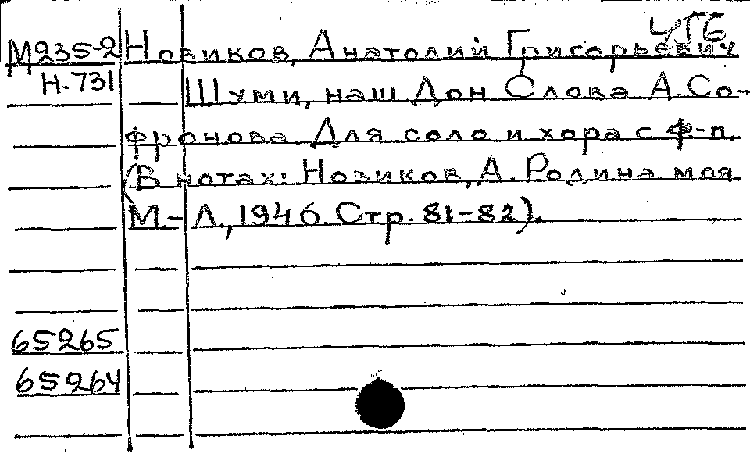 ЧТБ
М235-2 Новиков, Анатолий Григорьевич
Н-731 Шуми, наш Дон Слова А. Со-
фронова. Для соло и хора с ф-п.
(В нотах: Новиков, А. Родина моя
М.-Л., 1946 Стр. 81-82).
65265
65264